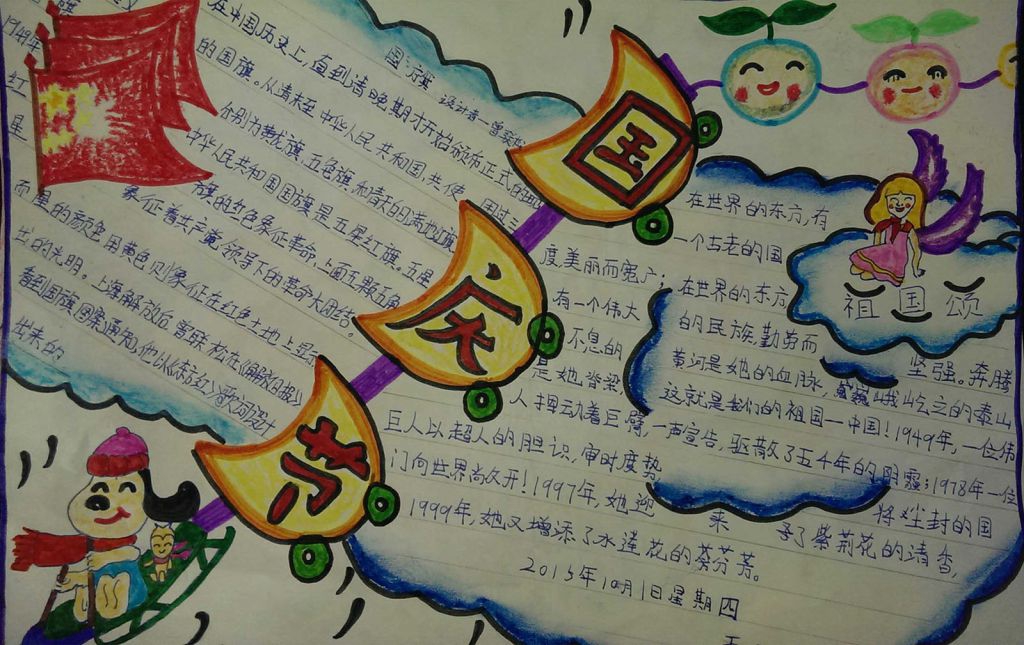 国旗
1949年
红
星
在中国历史上,直到清晚期才开始颁布正式的
的国旗。从清末至中华人民共和国,共使
分别为黄龙旗、五色旗和青天白日满地红旗。
中华人民共和国国旗是五星红旗。五星
旗的红色象征革命,上面五颗五角
象征着共产党领导下的革命大团结。
而星的颜色用黄色则象征在红色土地上显
出的光明。上海解放后,曾联松在《解放日报》
看到国旗图案通知,他从《东方红》歌词设计
出来的
国庆节
祖国颂
在世界的东方,有
一个古老的国
度美丽而宽广;在世界的东方
有一个伟大的民族,勤劳而坚强。奔腾
不息的黄河是她的血脉,巍峨屹立的泰山
是她脊梁这就是我们的祖国一中国!1949年,一位伟
人挥动着巨臂,一声宣告,驱散了五千年的阴霾;1978年一位
巨人以超人的胆识,审时度势将尘封的国
门向世界尚久开!1997年,她迎来吾了紫荆花的清香,
1999年,她又增添了水莲花的芬芳。
2015年10月1日星期四